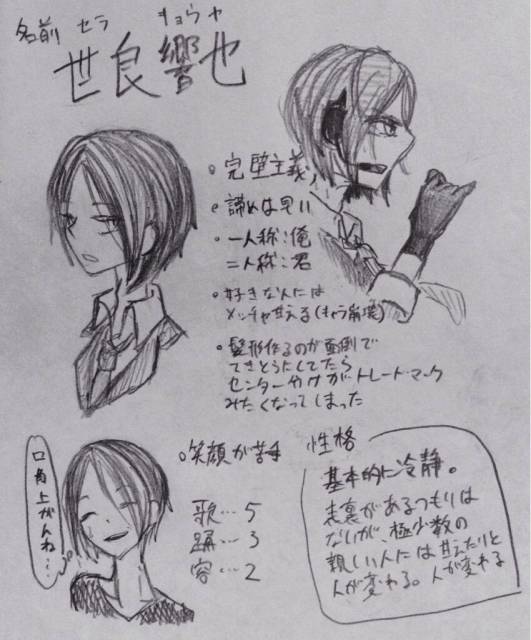 名前 セラ キョウヤ
世良響也
○完璧主義
○諦めは早い
・一人称:俺
二人称:君
・好きな人には
メッチャ甘える(キャラ崩壊)
・髪形作るのが面倒で
てきとうにしてたら
センターわけがトレードマーク
みたくなってしまった
○笑顔が苦手
口角上がんね…
歌…5
踊…3
容…2
性格
基本的に冷静。
表裏があるつもりは
ないが、極少数の
親しい人には甘えたりと
人が変わる。人が変わる